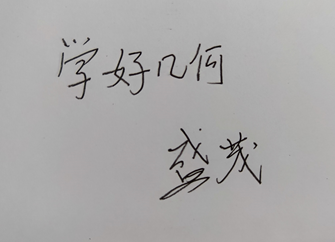 学好几何
盛茂